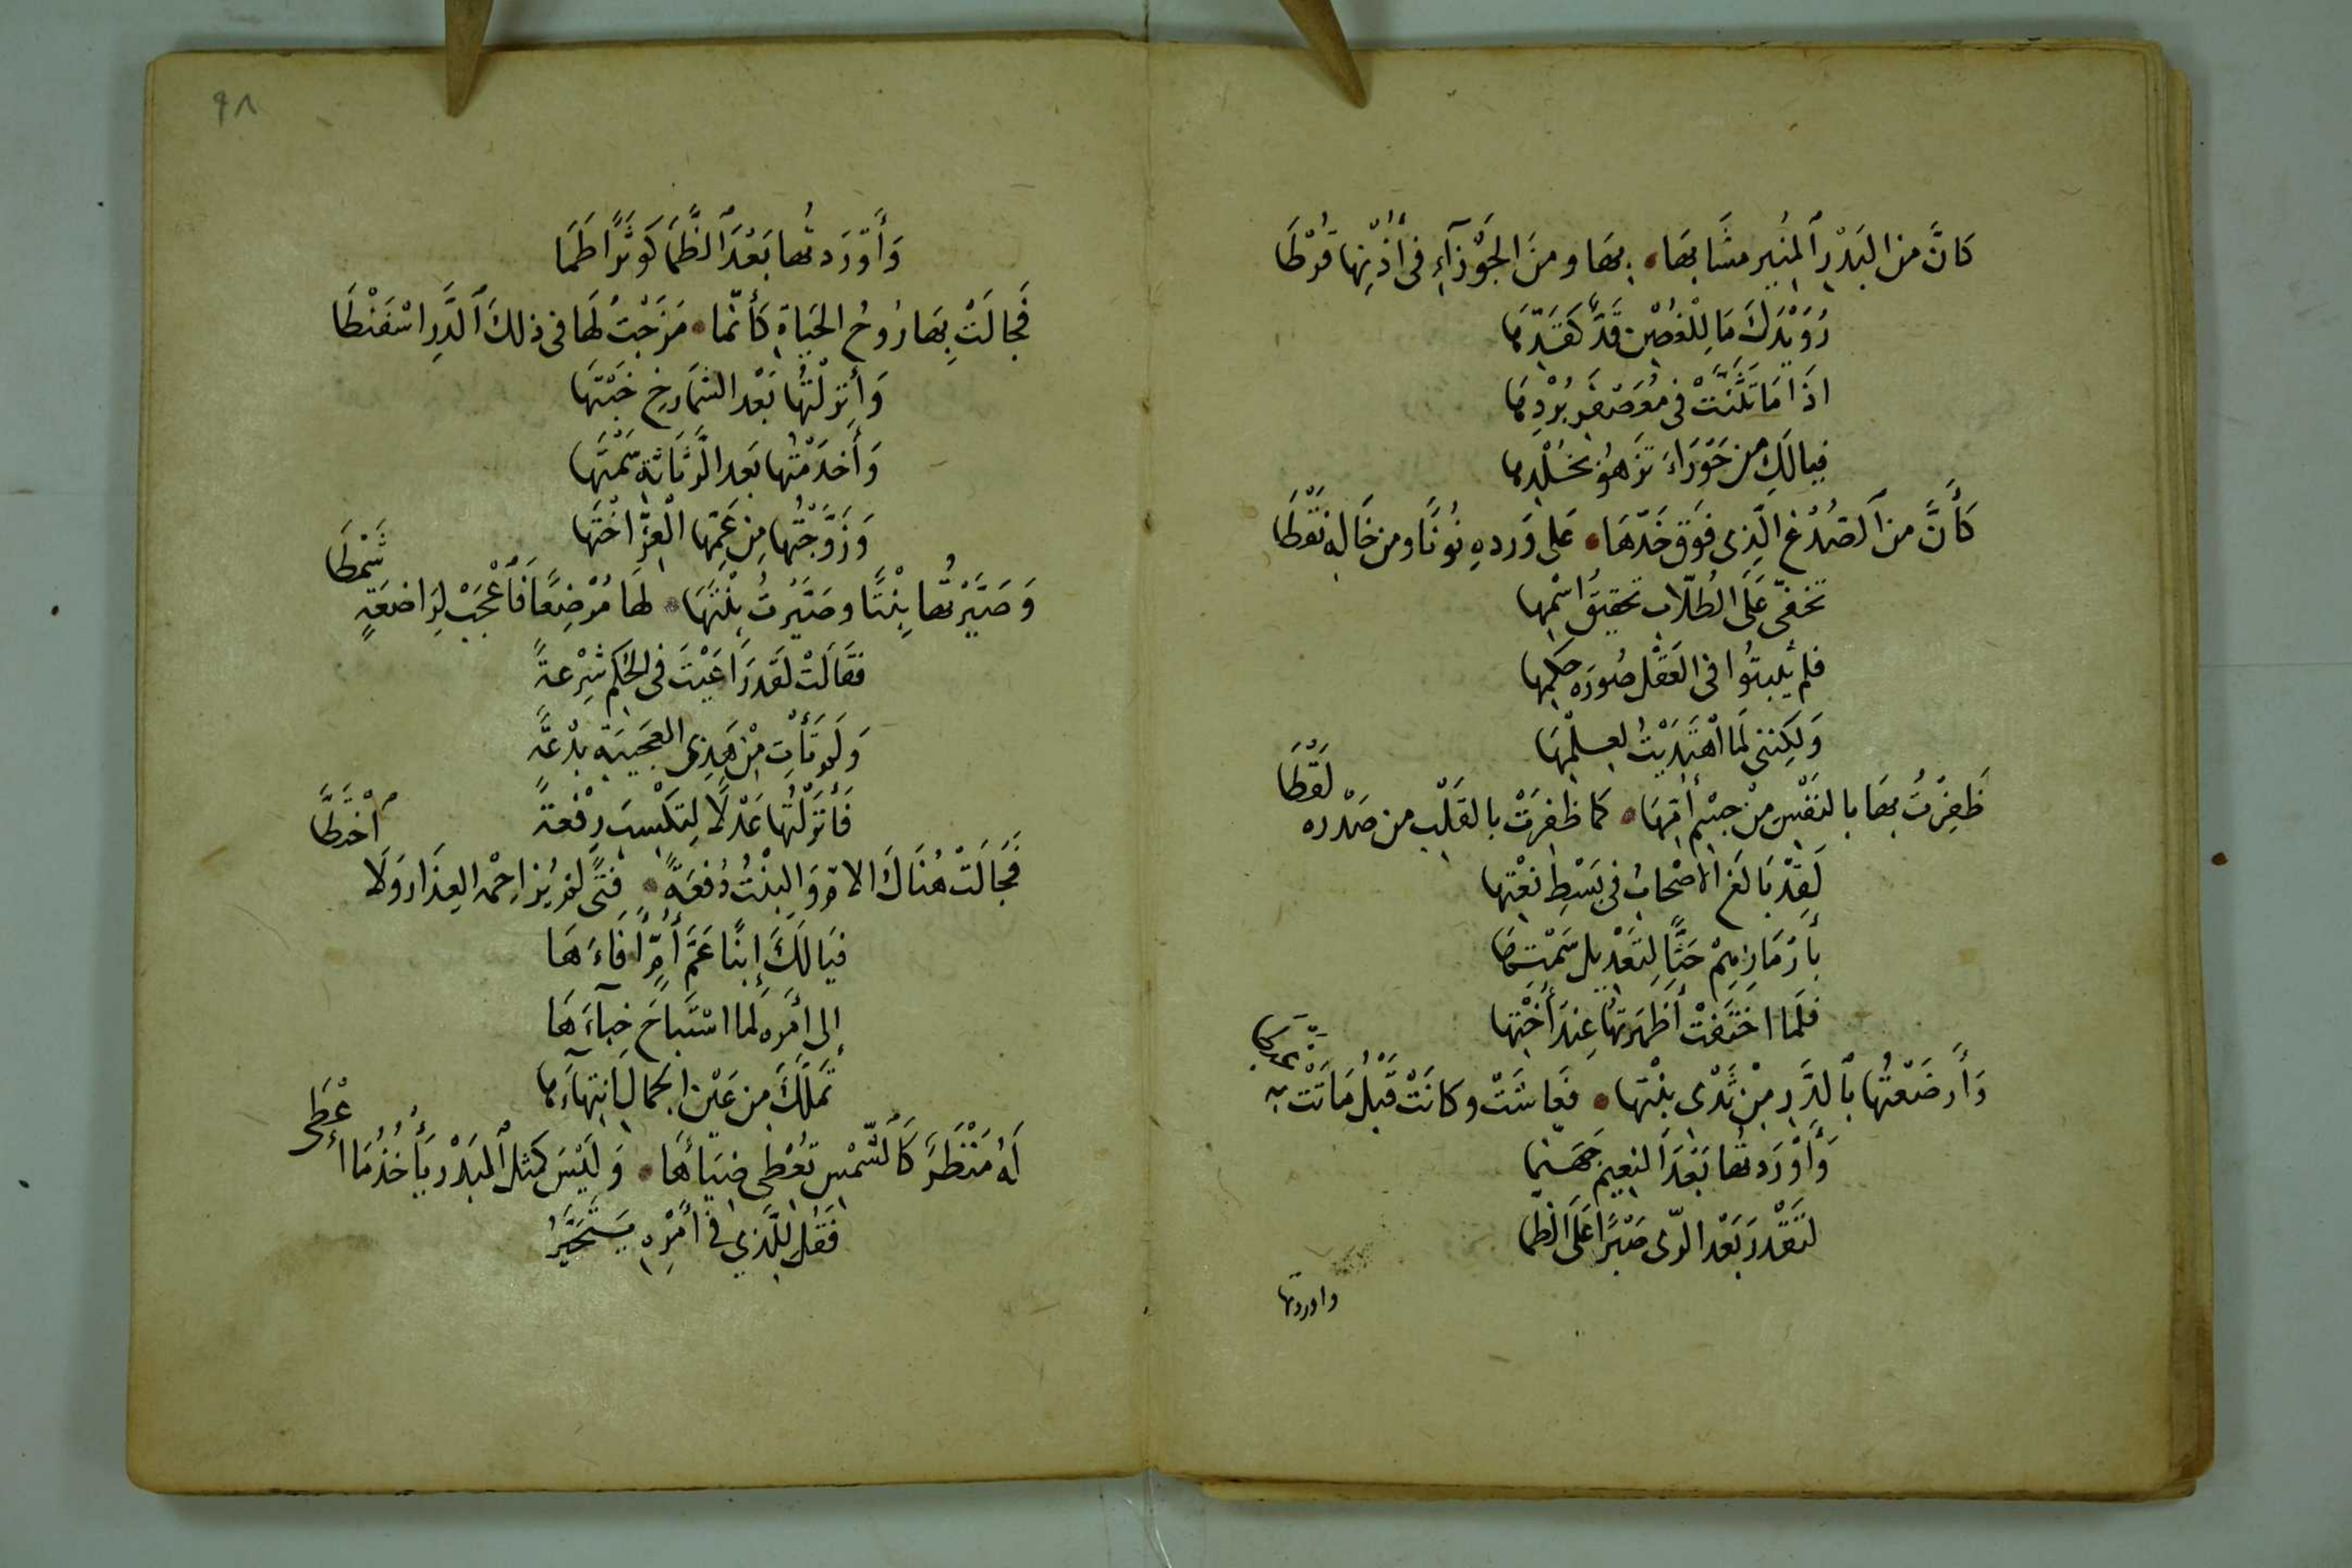 كَانَّ من البَدْرِ ٱلمُنِير مشَّابهَا • بهَا ومنَ الجَوْزآءِ فى أُذْنِها قُرْطَا
رُوَيْدَكَ مَا لِلْغُصْنِ قَدٌّ كَقَدِّهَا
اذَا مَا تَثَنَّتْ فى مُعَصْفَرِ بُرْدِهَا
فيالَكِ من حَوْرَاءَ تَزهُو بخُلْدِها
كَأَنَّ من ٱلصُدْغِ الَّذِى فَوَق خَدِّهَا • عَلى وَردِهِ نُونًا ومن خَالِهِ نَقْطَا
تخفّى عَلَى الطُلَّابِ تحقيقُ اسْمِها
فلم يُثبِتُوا فى العَقْلِ صُورَه حكمِها
وَلكِننى لَمَا اهْتَدَيْتُ لعِلْمِهَا
ظَفِرْتُ بهَا بالنَفْسِ مِنْ جِسْمِ أُمِّهَا • كما ظفِرَتْ بالقَلْبِ من صَدْره لَقْطَا
لَقِدْ بَالَغَ الأصْحابُ فى بَسْطِ نَعْتِها
بأَرْمَازِهِمْ حَثًّا لِتَعْدِيل سَمْتِهَا
فلَما اخْتَفَتْ أَظْهَرتهَا عِنْدَ أُخْتِها
وَأَرضَعْتُها بٱلدَّرِ مِنْ ثَدْىِ بِنْتِها • فعَاشَتْ وكانَتْ قَبْلُ مَاتَتْ به
وَأَوْرَدتُها بَعْدَ النعِيم جَهَنّما
لتَقْدرَ بَعْدَ الرّى صَبْرًا عَلَى الظَما
واوردتها
٩٨
وَأَوْرَدتُها بَعْدَ ٱلظَّمَا كَوثَرًا طَمَا
فَجالَتْ بِهَا رُوحُ الحَيَاةِ كَأَنّما • مَزَجْتُ لهَا فى ذلكَ ٱلدَّرِ اسْفَنْطَا
وَأَنزلْتُها بَعْد الشمَارِخِ خَبْتَها
وَأَخدَمْتُها بَعد الرَّثَاثةِ سَمْتَها
وَزَوَّجْتُها مِن عَمِّها الْعِزِّ اخْتَها
وَصَيَّرْتُها بِنْتًا وصَيَّرْتُ بِنْتَهَا • لهَا مُرْضِعًا فَٱعْجَبْ لِرَاضعَةٍ شَمْطَا
فقَالَتْ لقَد رَاعَيْتَ فى الحُكمِ شِرْعةً
وَلَمْ تَأْتِ مِنْ هَذِى العجَيبَةِ بِدْعَةً
فَأَنْزَلْتُها عَدْلًا لِتكْسِبَ رِفْعةً
فَجَالَتْ هُنَاكَ الامُّ وَالبِنْتُ دُفعَةً • فتًى لَمْ يُزاحِمْهُ العِذَارُ وَلَا ٱخْتَطَّا
فيَالَكَ إِبنًا عَمَّ أُمًّا فَاءَهَا
إلى أَمْرِه لما اسْتَباحَ خِبآءَهَا
تمَلَّكَ من عَيْنِ الجَمالِ انتِهآءَها
لَهُ مَنْظَرٌ كَٱلشّمْسِ تُعْطِى ضيَآءَهَا • وَلَيْسَ كمثلِ ٱلبَدْرِ يَأْخُذُ مَا أعْطَى
فَقُلْ لِلَّذِي في أَمْرِهِ يَتَحَيَّرُ